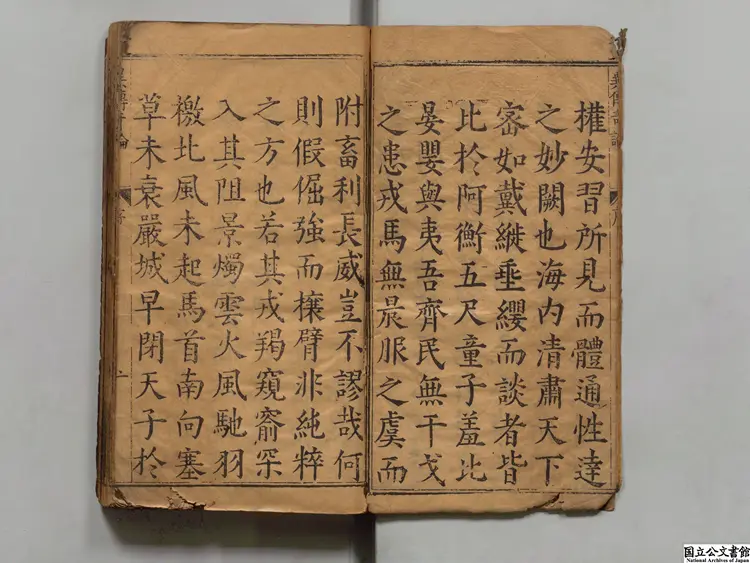 權安習所見而體通性達
之妙闕也海内清肅天下
宻如戴縰垂纓而談者皆
比於阿衡五尺童子羞比
晏嬰與夷吾齊民無干戈
之患戎馬無晨服之虞而
附畜利長威豈不謬哉何
則假倔強而攘臂非純粹
之方也若其戎羯窺窬罙
入其阻景燭雲火風馳羽
檄北風未起馬首南向塞
草未衰嚴城早閉天子於
国立公文書館
National Archives of Japan